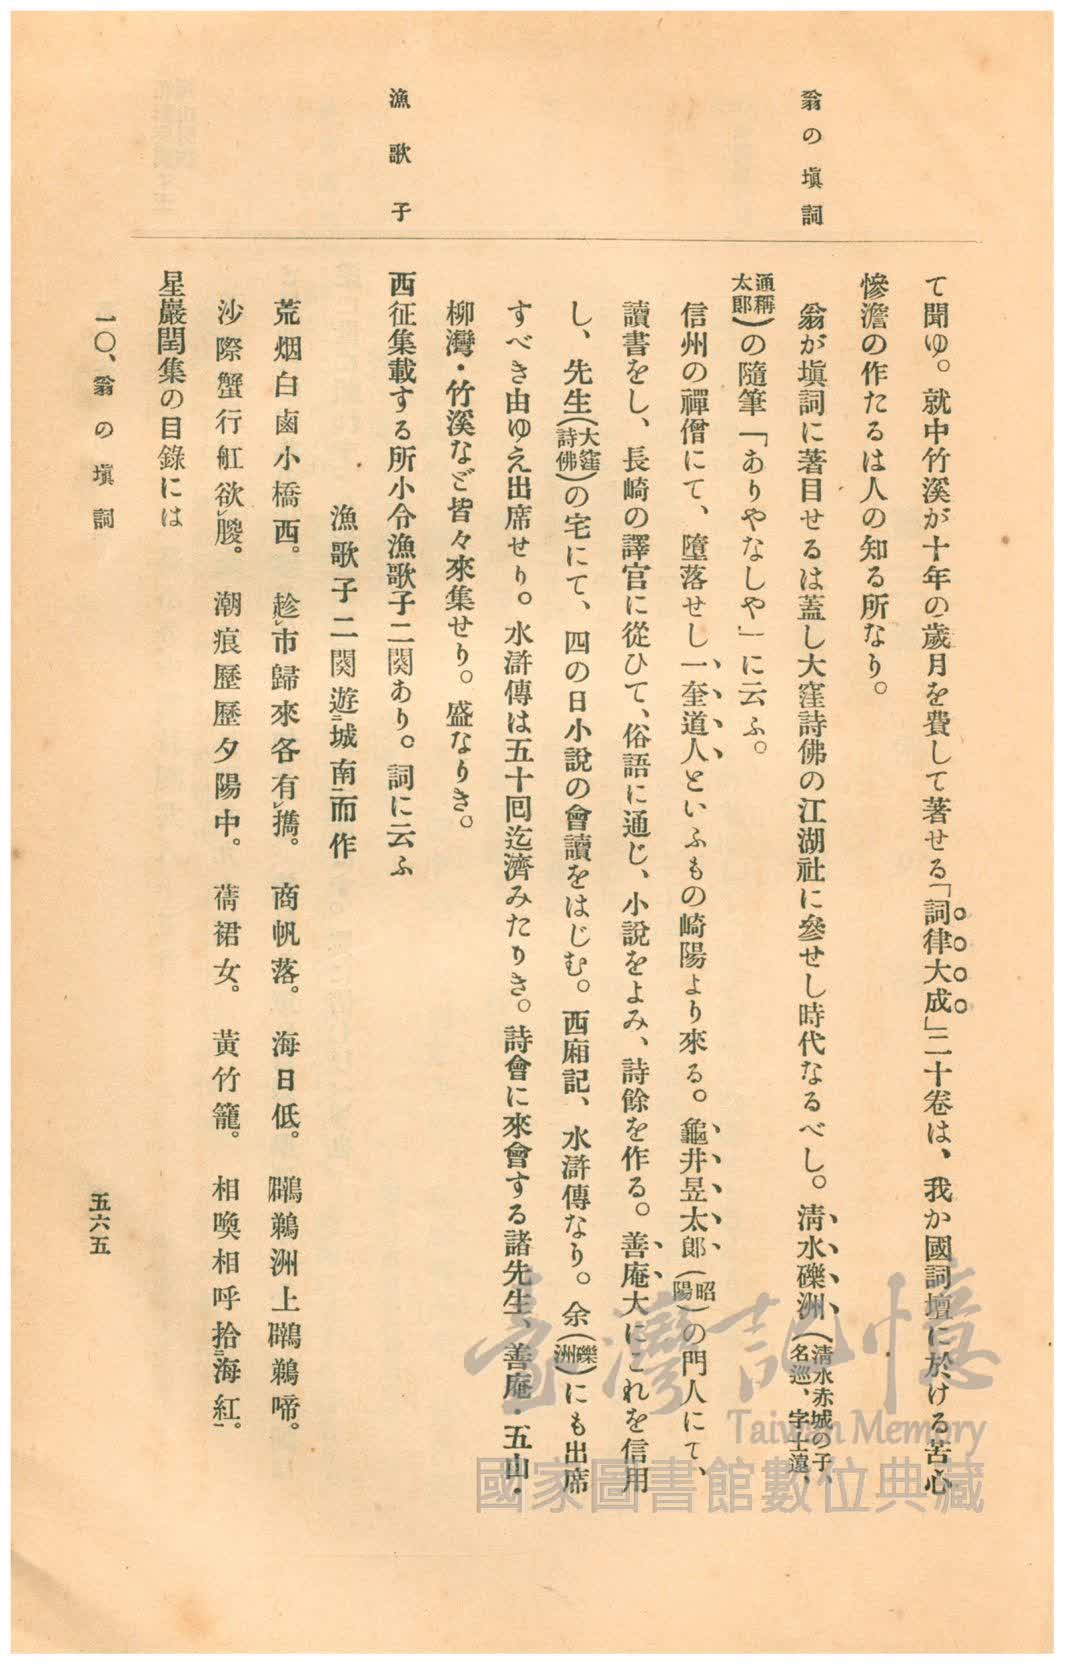 翁の塡詞
漁歌子
て聞ゆ。就中竹溪が十年の歲月を費して著せる「詞律大成」二十卷は、我か國詞壇に於ける苦心
慘澹の作たるは人の知る所なり。
翁が塡詞に著目せるは蓋し大窪詩佛の江湖社に參せし時代なるべし。淸水礫洲(淸水赤城の子、名巡、字士遠、
通稱太郞)の隨筆「ありやなしや」に云ふ。
信州の禪僧にて、墮落せし一奎道人といふもの崎陽より來る。龜井昱太郞(昭陽)の門人にて、
讀書をし、長崎の譯官に從ひて、俗語に通じ、小說をよみ、詩餘を作る。善庵大にこれを信用
し、先生(大窪詩佛)の宅にて、四の日小說の會讀をはじむ。西廂記、水滸傳なり。余(礫洲)にも出席
すべき由ゆえ出席せり。水滸傳は五十回迄濟みたりき。詩會に來會する諸先生、善庵・五山・
柳灣・竹溪など皆々來集せり。盛なりき。
西征集載する所小令漁歌子二閱あり。詞に云ふ
漁歌子二閱遊二城南一而作
荒烟白鹵小橋西。趁レ市歸來各有レ攜。商帆落。海日低。鸊鵜洲上鸊鵜啼。
沙際蟹行舡欲レ朡。潮痕歷歷夕陽中。蒨裙女。黃竹籠。相喚相呼拾二海紅一。
星巖閏集の目錄には
一〇、翁の塡詞
五六五
臺灣記憶
Taiwan Memory
國家圖書館數位典藏